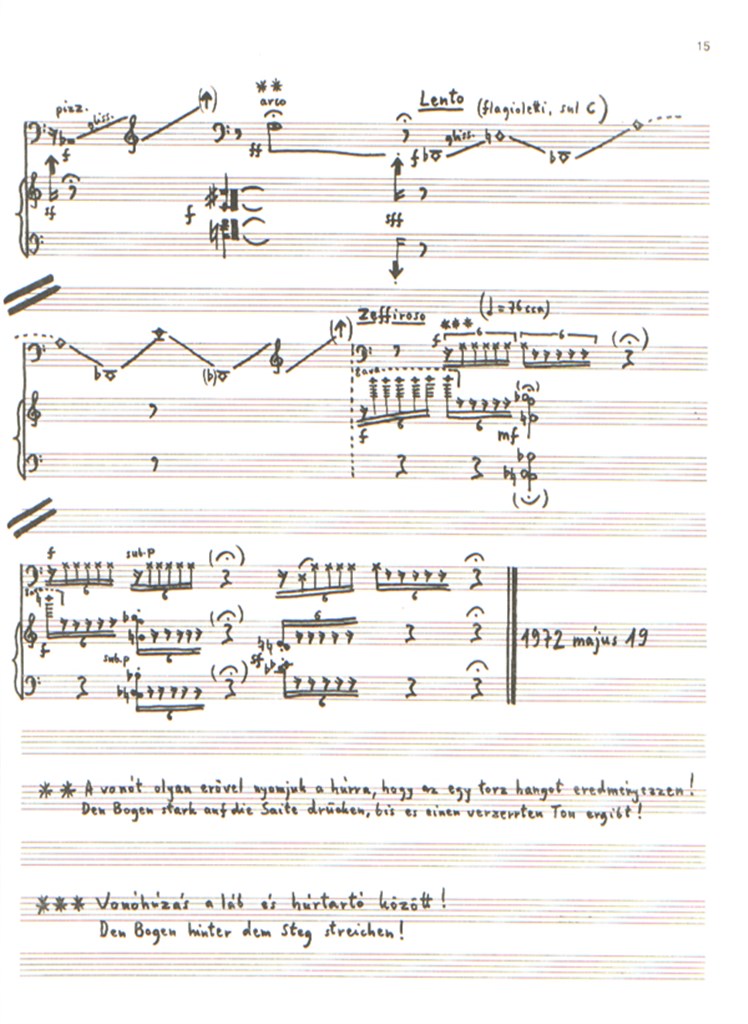 15
pizz.
gliss.
f
sf
f
**
arco
ff
sff
Lento (flagioletti, sul C)
f
gliss.
Zeffiroso (♩=76 cca)
***
f
6
6
8ava
f
6
6
mf
f
6
sub.p
6
6
6
f
6
6
6
sub.p
6
sf
6
1972 május 19
** A vonót olyan erővel nyomjuk a húrra, hogy az egy torz hangot eredményezzen!
Den Bogen stark auf die Saite drücken, bis es einen verzerrten Ton ergibt!
*** Vonóhúzás a láb és húrtartó között!
Den Bogen hinter dem Steg streichen!